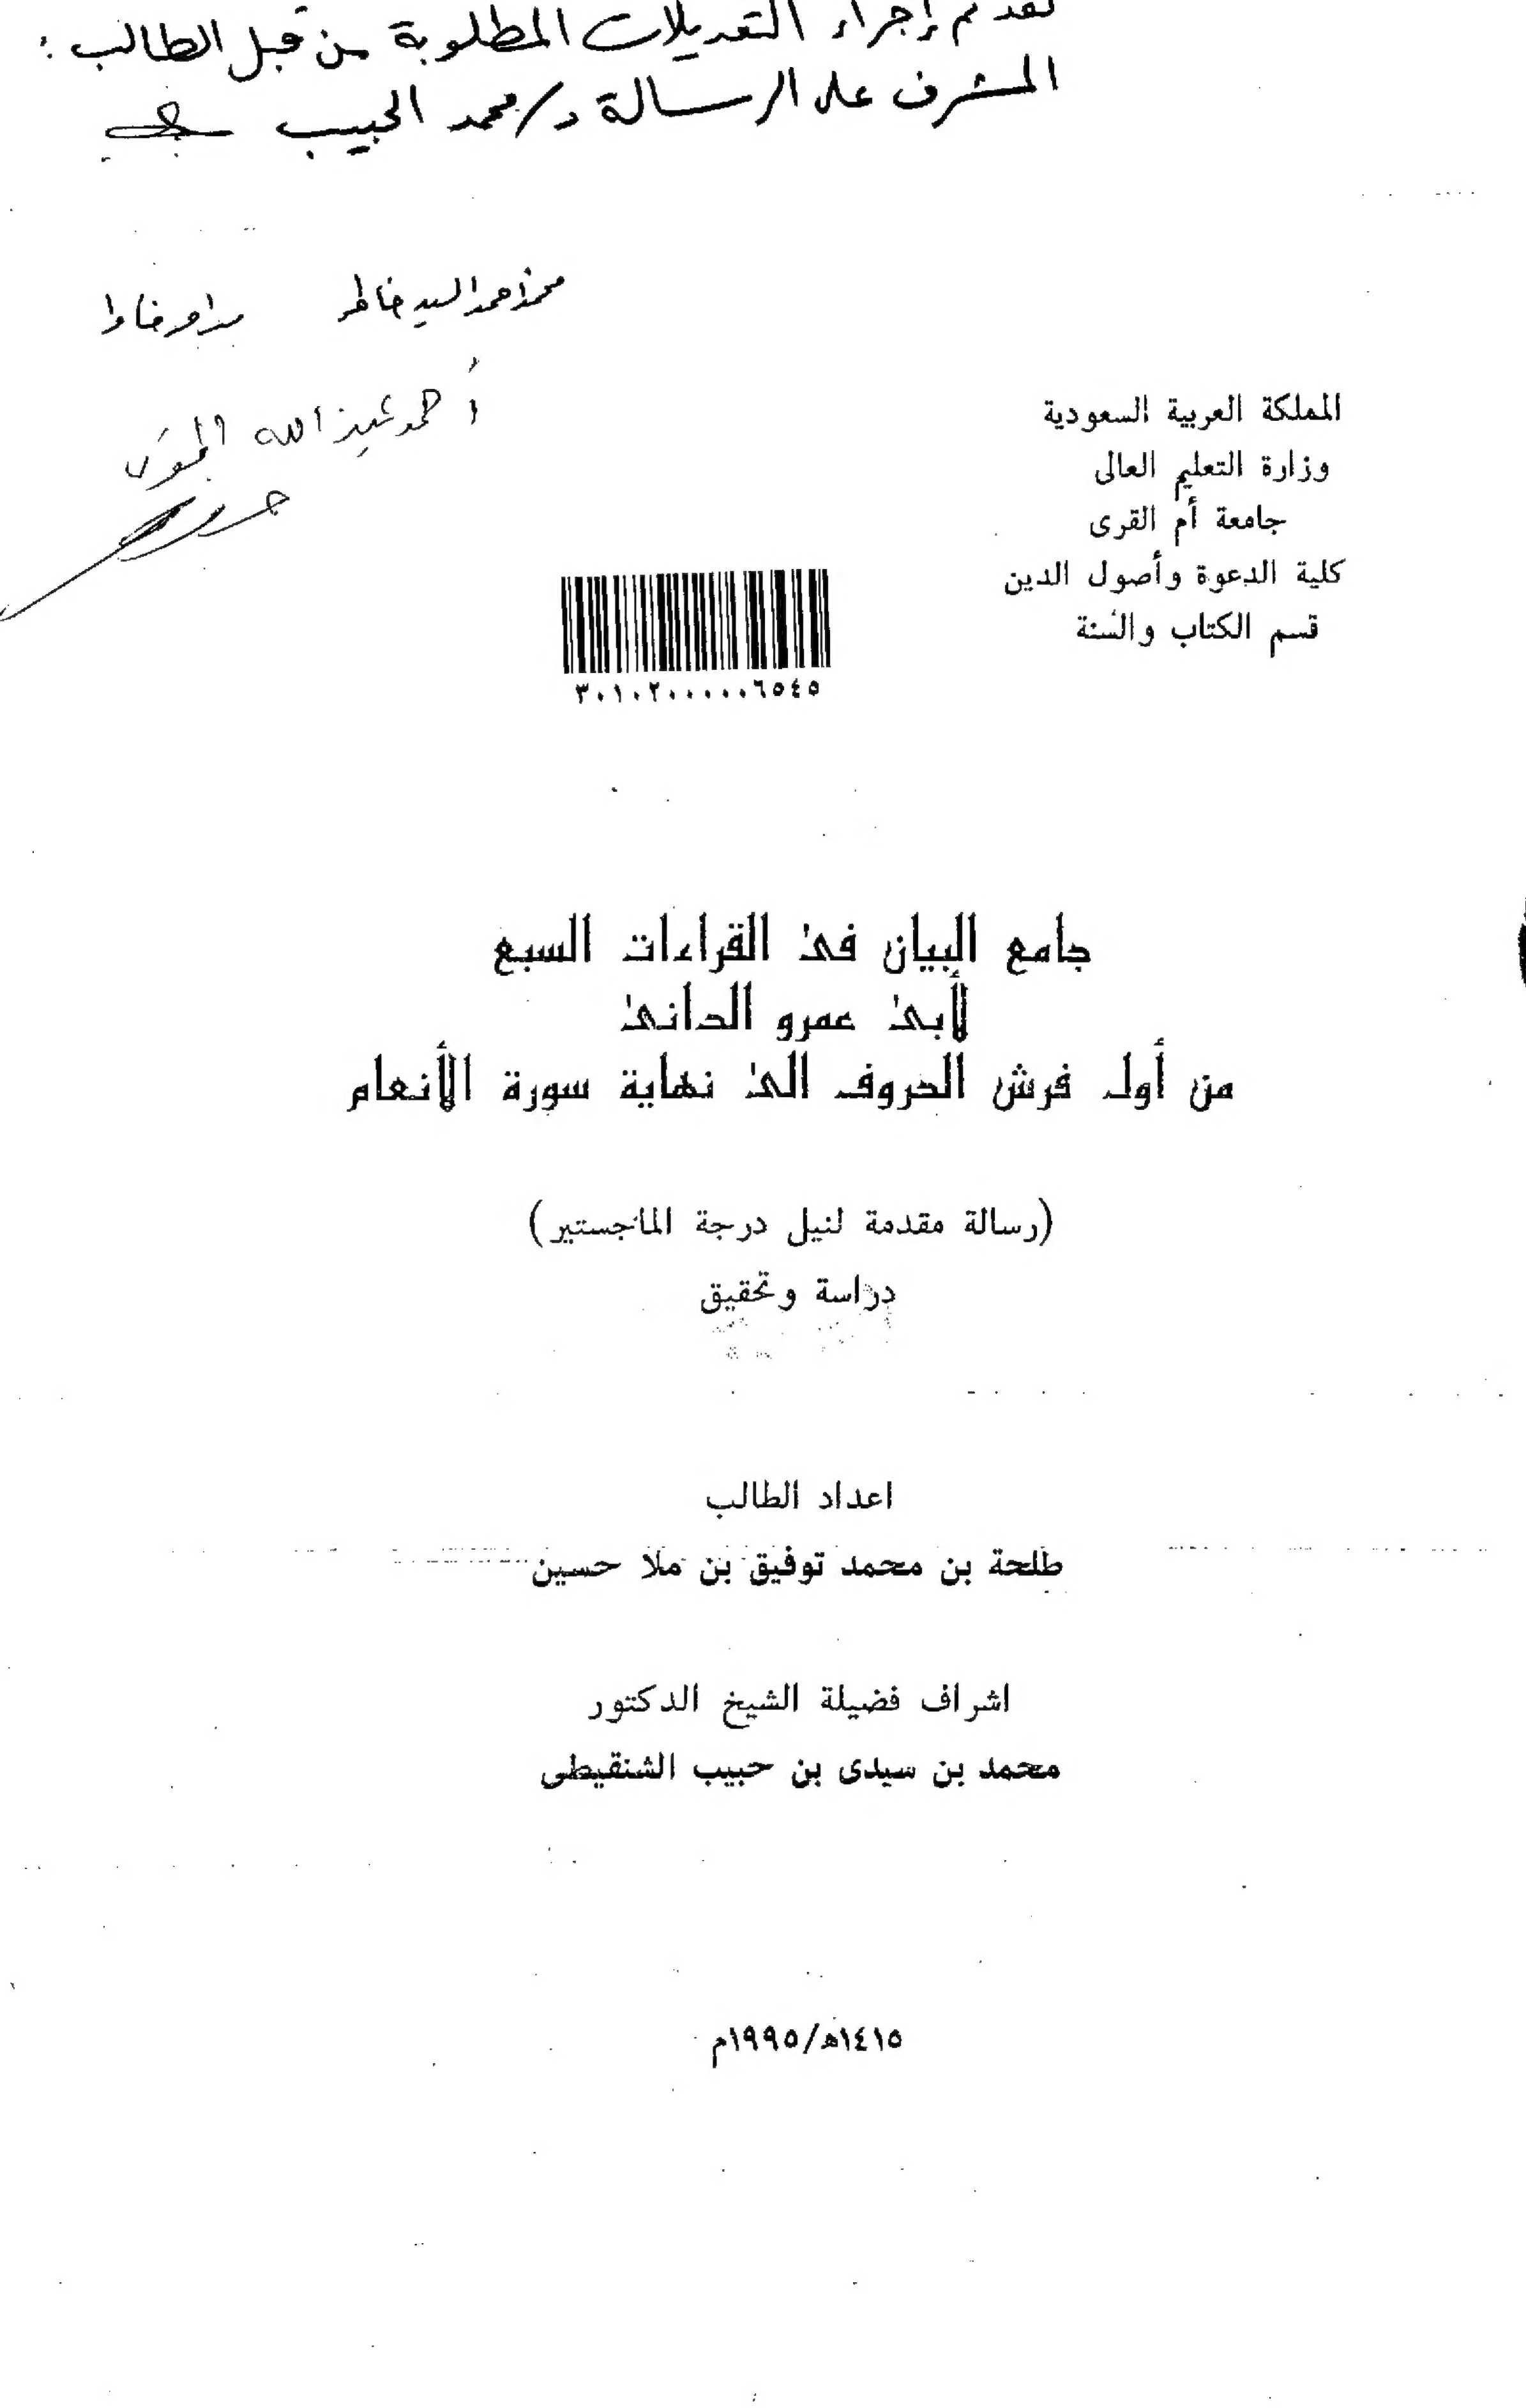 لقد تم إجراء التعديلات المطلوبة من قبل الطالب :
المشرف على الرسالة د/محمد الحبيب
محمد أحمد السيد خاطر
أحمد عبد الله
المملكة العربية السعودية
وزارة التعليم العالى
جامعة أم القرى
كلية الدعوة وأصول الدين
قسم الكتاب والسنة
٣٠١٠٢٠٠٠٠٠٦٥٤٥
جامع البيان فى القراءات السبع
لأبى عمرو الدانى
من أول فرش الحروف الى نهاية سورة الأنعام
(رسالة مقدمة لنيل درجة الماجستير)
دراسة وتحقيق
اعداد الطالب
طلحة بن محمد توفيق بن ملا حسين
اشراف فضيلة الشيخ الدكتور
محمد بن سيدى بن حبيب الشنقيطى
١٤١٥ه/١٩٩٥م